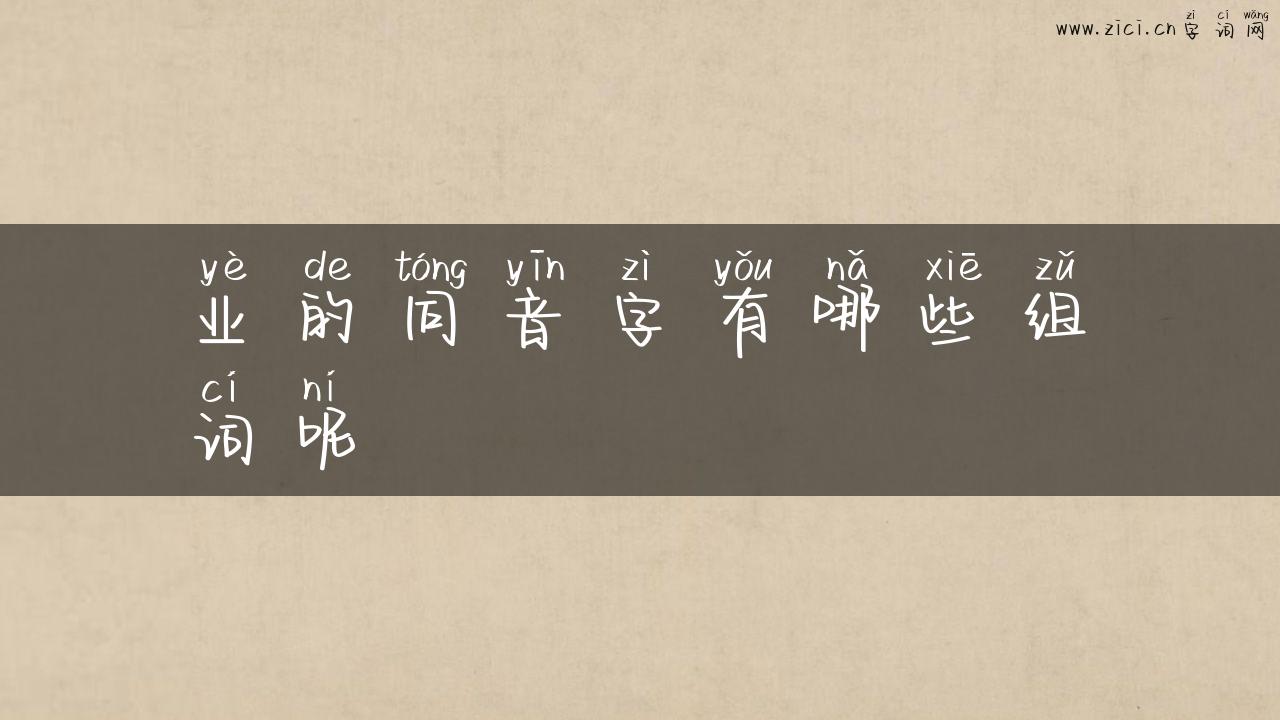 zì cí wǎng
www.zici.cn 字词网
yè de tóng yīn zì yǒu nǎ xiē zǔ
业的同音字有哪些组
cí ní
词呢